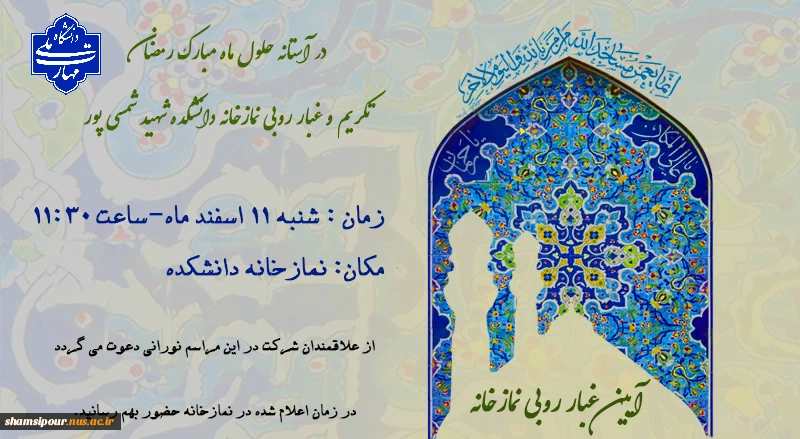 دانشگاه
ملی
مهارت
در آستانه حلول ماه مبارک رمضان
تکریم و غبار روبی نمازخانه دانشکده شهید شمسی پور
زمان : شنبه ۱۱ اسفند ماه-ساعت ۱۱:۳۰
مکان: نمازخانه دانشکده
از علاقمندان شرکت در این مراسم نورانی دعوت می گردد
در زمان اعلام شده در نمازخانه حضور بهم رسانید.
انما یعمر مساجد الله من آمن بالله والیوم الآخر
آیین غبار روبی نمازخانه
shamsipour.nus.ac.ir